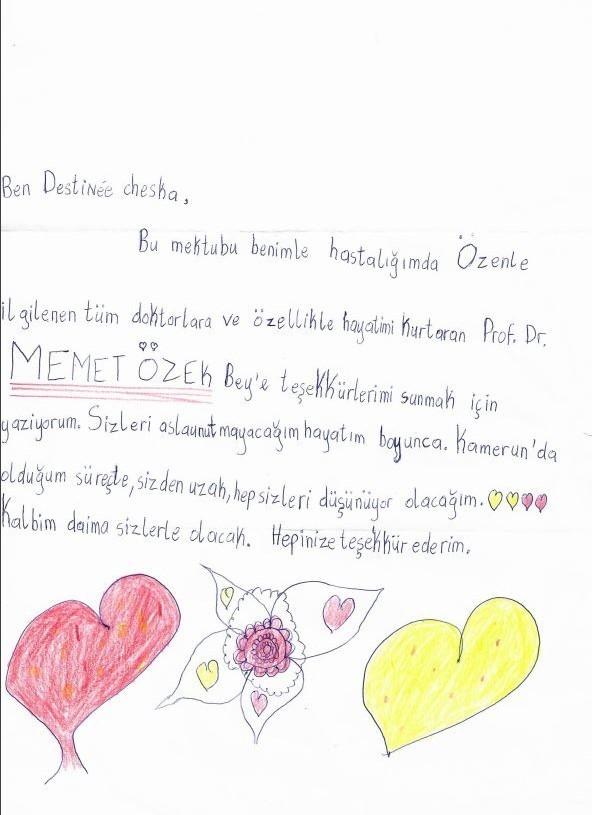 Ben Destinée cheska,
Bu mektubu benimle hastalığımda Özenle
ilgilenen tüm doktorlara ve özellikle hayatimi kurtaran Prof. Dr.
MEMET ÖZEK Bey'e teşekkürlerimi sunmak için
yaziyorum. Sizleri aslaunutmayacağım hayatım boyunca. Kamerun'da
olduğum süreçte, sizden uzak, hep sizleri düşünüyor olacağım.
Kalbim daima sizlerle olacak. Hepinize teşekkür ederim.